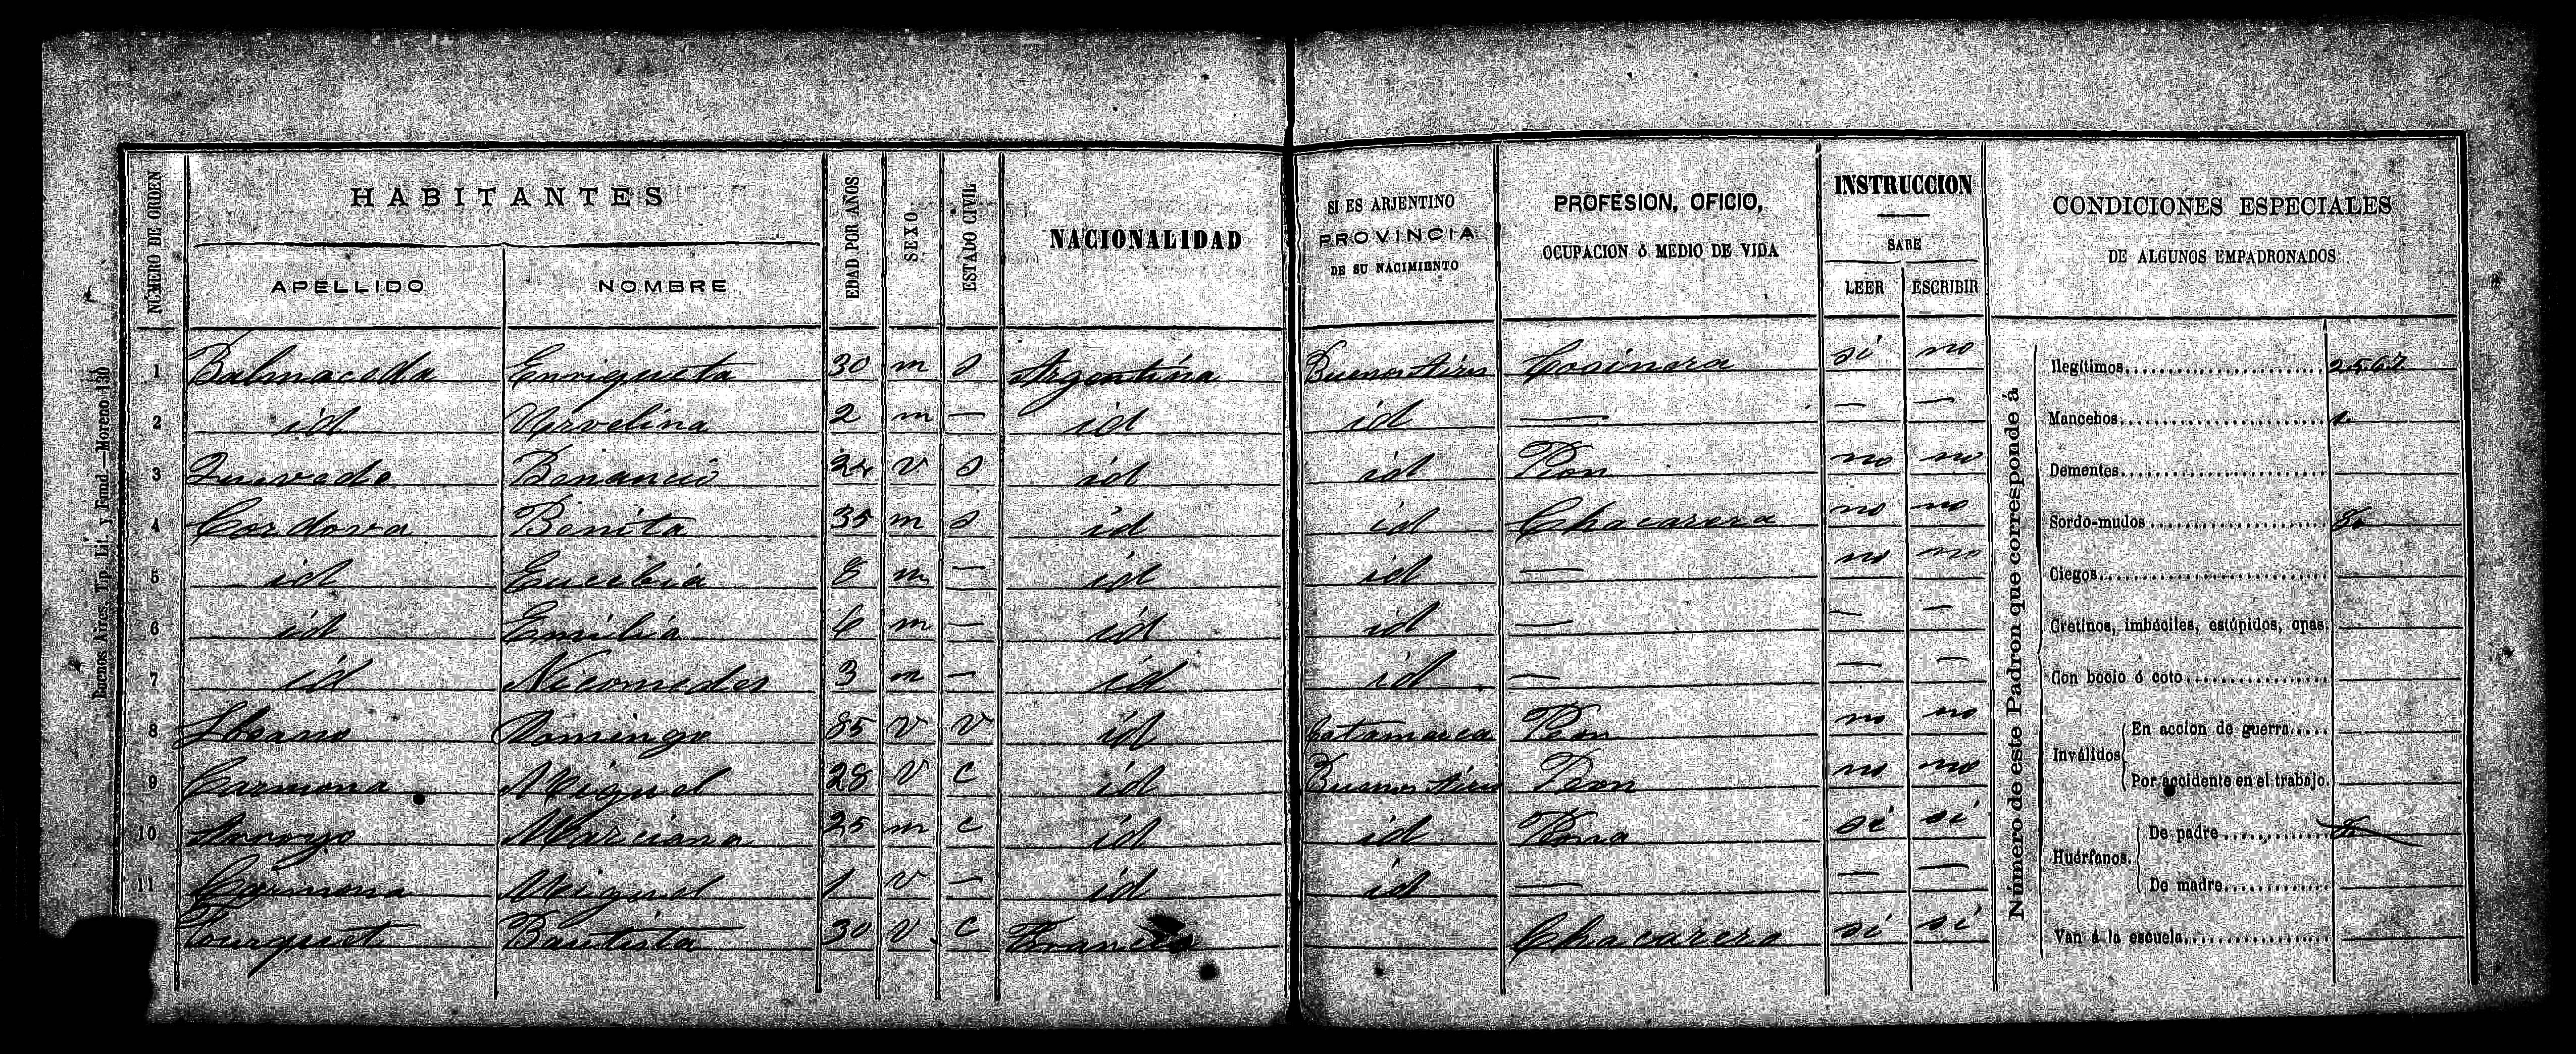 NÚMERO DE ORDEN
HABITANTES
APELLIDO
NOMBRE
EDAD POR AÑOS
SEXO
ESTADO CIVIL
NACIONALIDAD
SI ES ARJENTINO
PROVINCIA
DE SU NACIMIENTO
PROFESION, OFICIO,
OCUPACION ó MEDIO DE VIDA
INSTRUCCION
SABE
LEER
ESCRIBIR
CONDICIONES ESPECIALES
DE ALGUNOS EMPADRONADOS
1 Balmaceda Enriqueta 30 m s Argentina Buenos Aires Cosinera si no
2 id 2 m — id id — — —
3 Quevedo Benancio 24 v s id id Peon no no
4 Cordova Benita 35 m s id id Chacarera no no
5 id Eucebia 8 m — id id — no no
6 id Emilia 6 m — id id — — —
7 id Nicomedes 3 m — id id — — —
8 Domingo 85 v v id Catamarca Peon no no
9 Carmona Miguel 28 v c id Buenos Aires Peon no no
10 Arroyo Marciana 25 m c id id Peona si si
11 Carmona Miguel 1 v — id id — — —
Tourquet Bautista 30 v. c Frances Chacarero si si
Número de este Padron que corresponde á
Ilegítimos 2.5.6.7.
Mancebos
Dementes
Sordo-mudos 8.
Ciegos
Cretinos, imbéciles, estúpidos, opas.
Con bocio ó coto
Inválidos
En accion de guerra
Por accidente en el trabajo.
Huérfanos.
De padre
De madre
Van á la escuela
Buenos Aires. Tip. Lit. y Fund.—Moreno 130